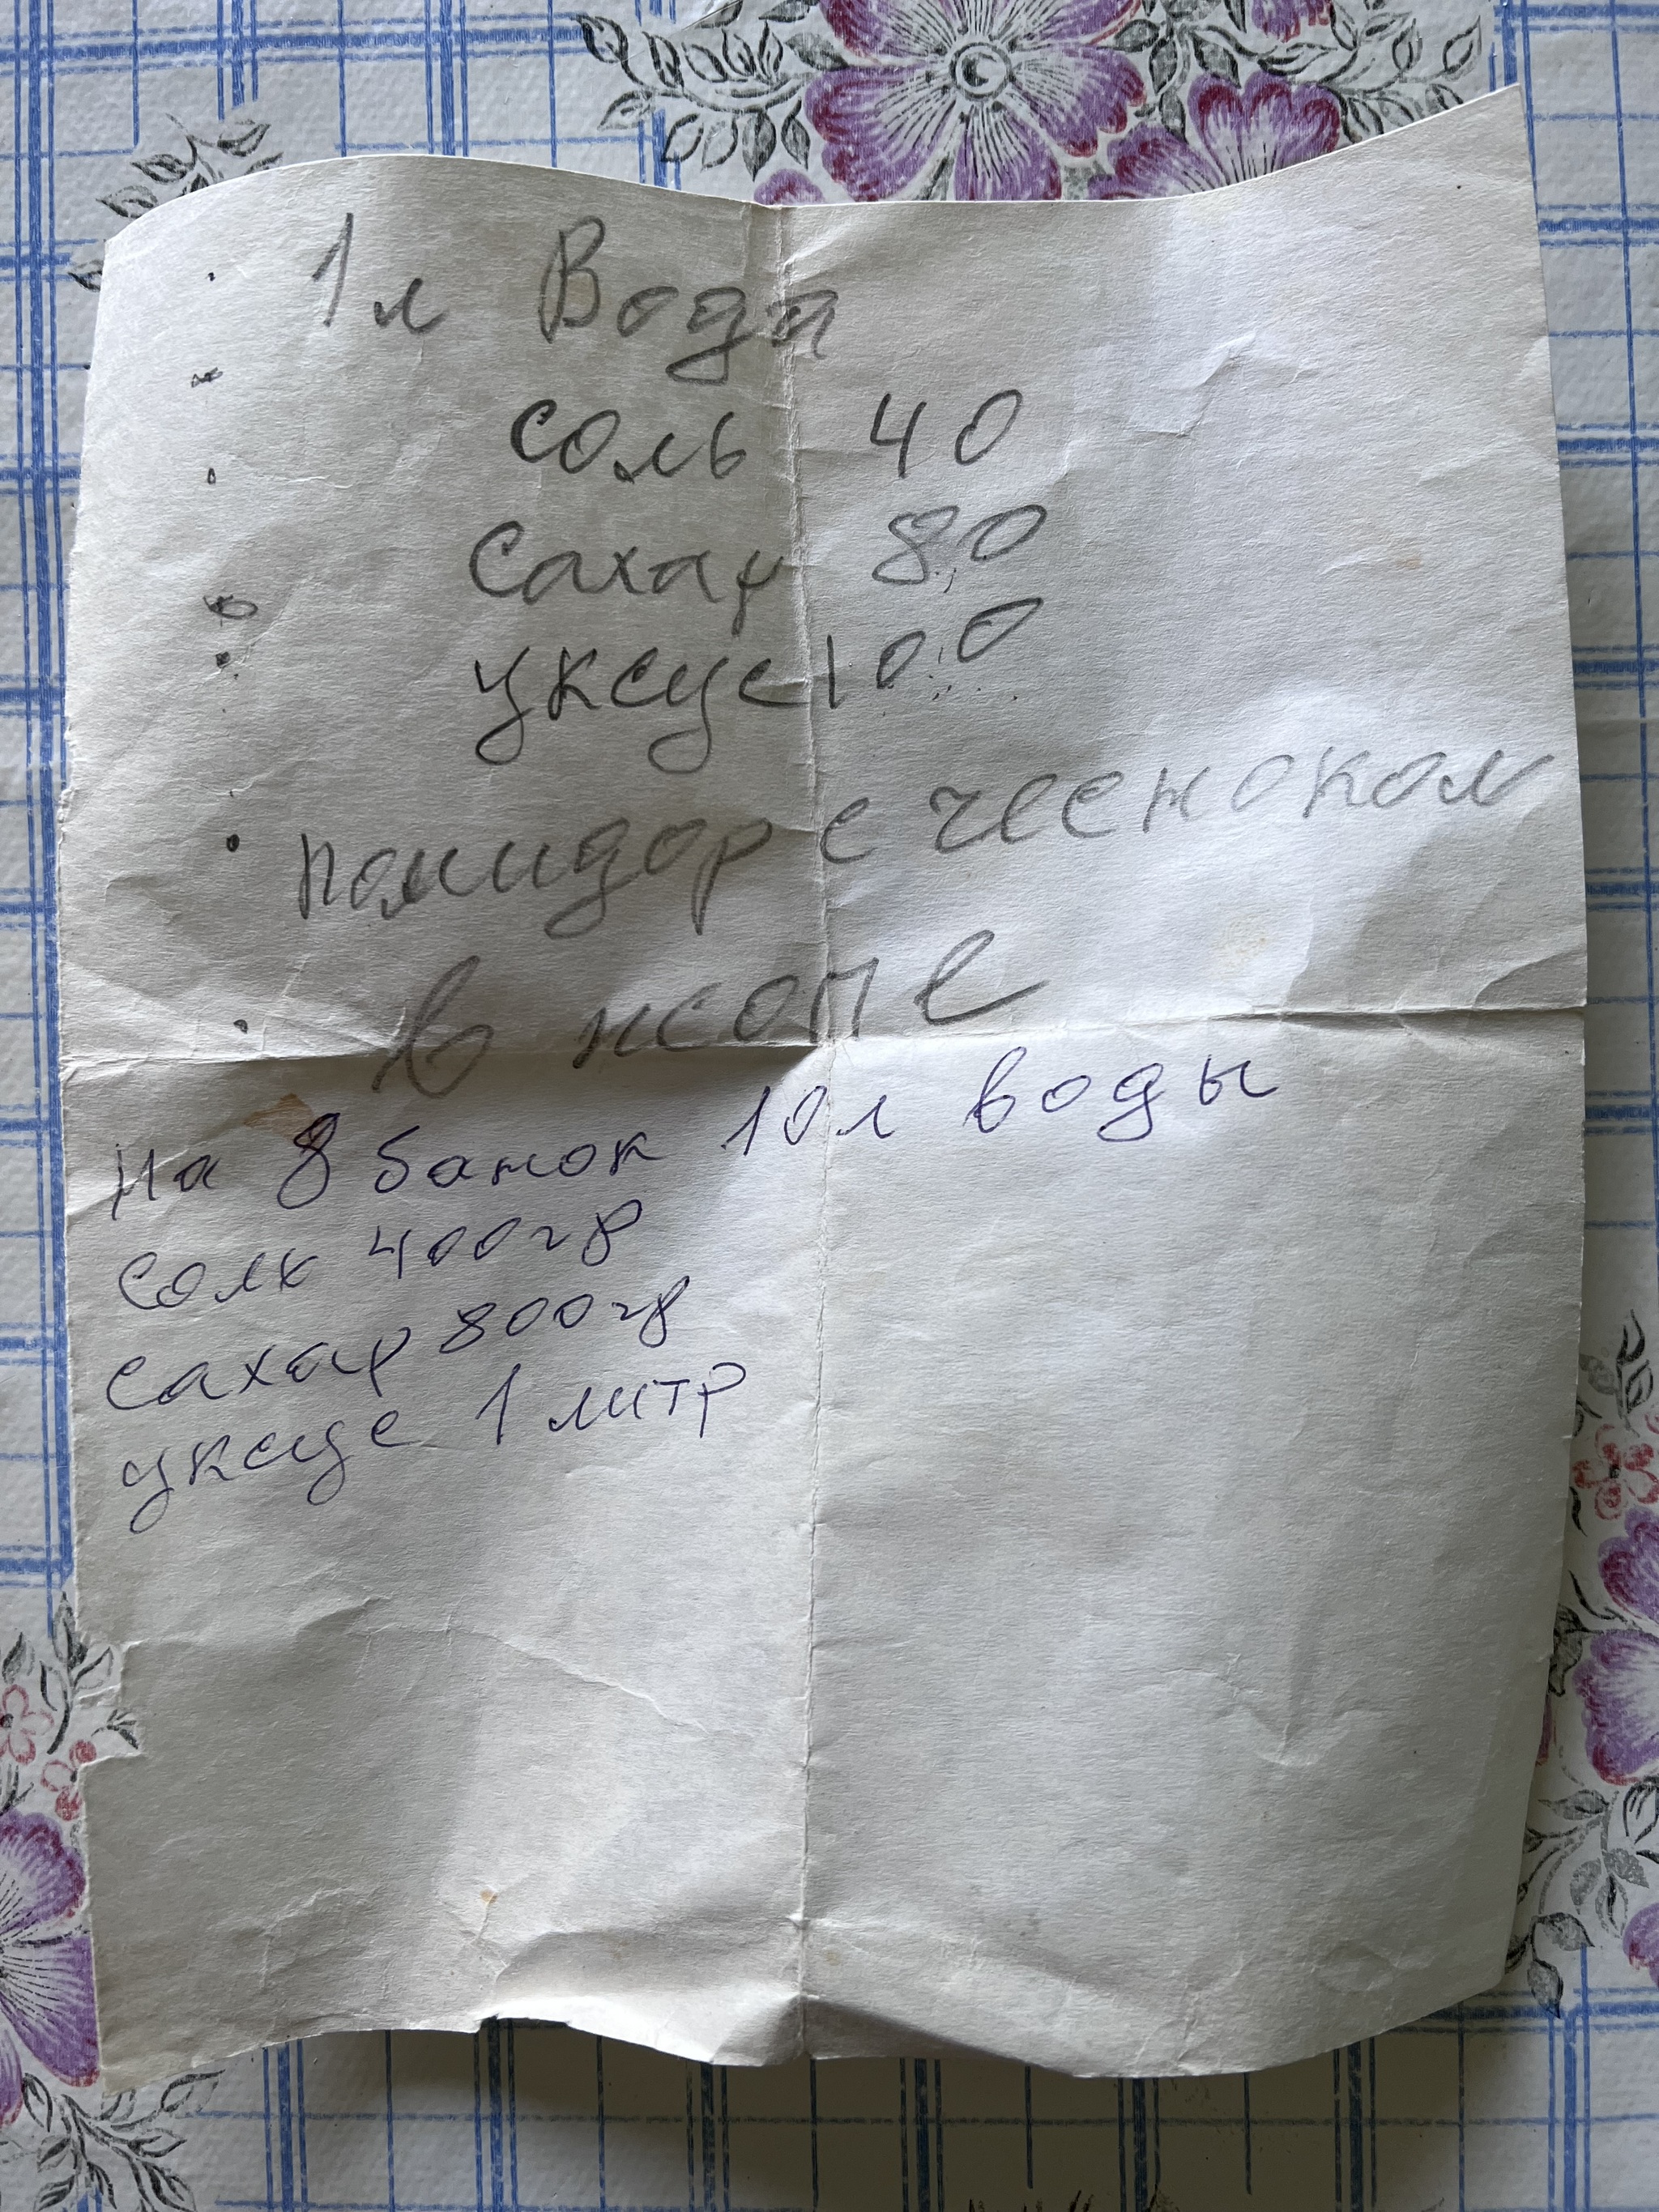 1л Вода
соль 40
Сахар 80
уксус 100
помидор с чесноком
в жопе
на 8 банок 10л воды
соль 400гр
сахар 800гр
уксус 1 литр